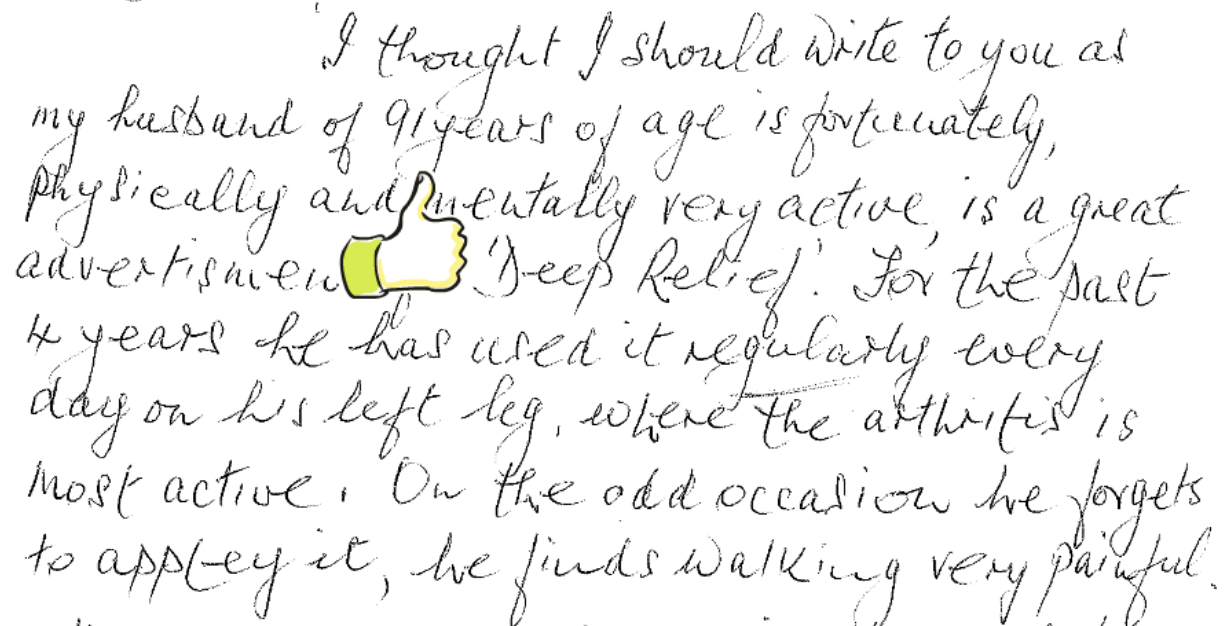 I thought I should write to you as
my husband of 91 years of age is fortunately,
physically and mentally very active, is a great
advertismen 'Deep Relief'. For the past
4 years he has used it regularly every
day on his left leg, where the arthritis is
most active. On the odd occasion he forgets
to appley it, he finds walking very painful.